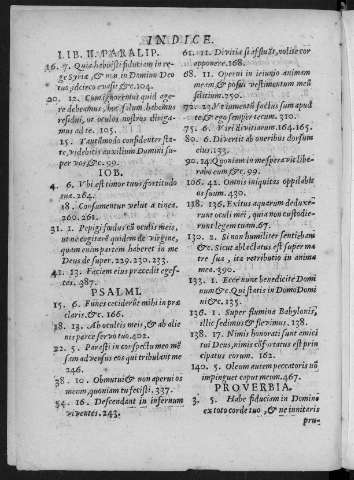 INDICE.
LIB. II. PARALIP.
16. 7. Quia habuisti fiduciam in re-
ge Syriæ, & nō in Domino Deo
tuo, idcirco evasit &c. 104.
20. 12. Cum ignoremus quid age-
re debeamus, hoc solum habemus
residui, ut oculos nostros diriga-
mus ad te. 105.
15. Tantūmodo confidenter sta-
te, videbitis auxilium Domini su-
per vos &c. 99.
IOB.
4. 6. Vbi est timor tuus fortitudo
tua. 284.
18. Consumentur velut a tinea.
260. 261.
31. 1. Pepigi fœdus cū oculis meis,
ut ne cogitarē quidem de virgine,
quam enim partem haberet in me
Deus de super. 229. 230. 233.
41. 13. Faciem eius præcedit ege-
stas. 387.
PSALMI.
15. 6. Funes ceciderūt mihi in præ-
claris. &c. 166.
18. 13. Ab ocultis meis, & ab alie
nis parce servo tuo. 402.
22. 5. Parasti in conspectu meo mē
sam adversus eos qui tribulant me
246.
38. 10. Obmutui & non aperui os
meum, quoniam tu fecisti. 337.
54. 16. Descendant in infernum
viventes. 243.
61. 11. Divitiæ si affluāt, nolite cor
opponere. 168.
68. 11. Operui in ieiunio animam
meam & posui vestimentum meū
silitium. 250.
72. 23 Vt iumentū factus sum apud
te & ego semper tecum. 310.
75. 6. Viri divitiarum. 164. 165.
80. 6. Divertit ab oneribus dorsum
eius. 133.
90. 14 Quoniam in me speravit libe-
rabo eum &c. 99.
106. 42. Omnis iniquitas oppilabit
os suum. 430.
118. 136. Exitus aquarum deduxe-
runt oculi mei, quia non custodie-
runt legem tuam. 67.
130. 2. Si non humiliter sentiebam
&c. Sicut ablectatus est super ma
tre sua, ita retributio in anima
mea. 390.
133. 1. Ecce nunc benedicite Domi
num &c. Qui statis in Domo Domi
ni &c. 135.
136. 1. Super flumina Babylonis,
illic sedimus & flevimus. 138.
138. 17. Nimis honorati sunt amici
tui Deus, nimis cōfortatus est prin
cipatus eorum. 162.
140. 5. Oleum autem peccatoris nō
impinguet caput meum. 467.
PROVERBIA.
3. 5. Habe fiduciam in Domino
ex toto corde tuo, & ne innitaris
pru-